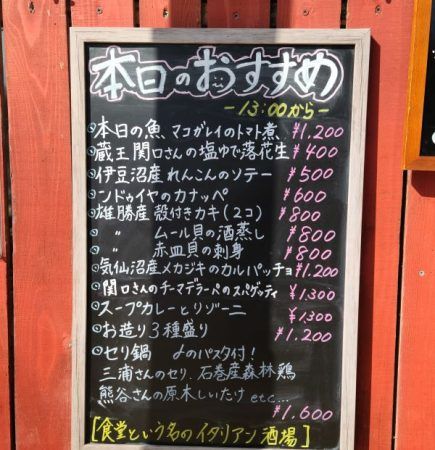 本日のおすすめ
-13:00から-
◎本日の魚 マコガレイのトマト煮 ¥1,200
◎蔵王 関口さんの塩ゆで落花生 ¥400
◎伊豆沼産 れんこんのソテー ¥500
◎ンドゥイヤのカナッペ ¥600
◎雄勝産 殻付きカキ(2コ) ¥800
◎ 〃 ムール貝の酒蒸し ¥800
◎ 〃 赤皿貝の刺身 ¥800
◎気仙沼産メカジキのカルパッチョ ¥1,200
◎関口さんのチーマデラーペのスパゲッティ ¥1,300
◎スープカレーとリゾーニ ¥1,300
◎お造り3種盛り ¥1,200
◎セリ鍋 〆のパスタ付!
三浦さんのセリ、石巻産森林鶏
熊谷さんの原木しいたけ etc...
¥1,600
[食堂という名のイタリアン酒場]